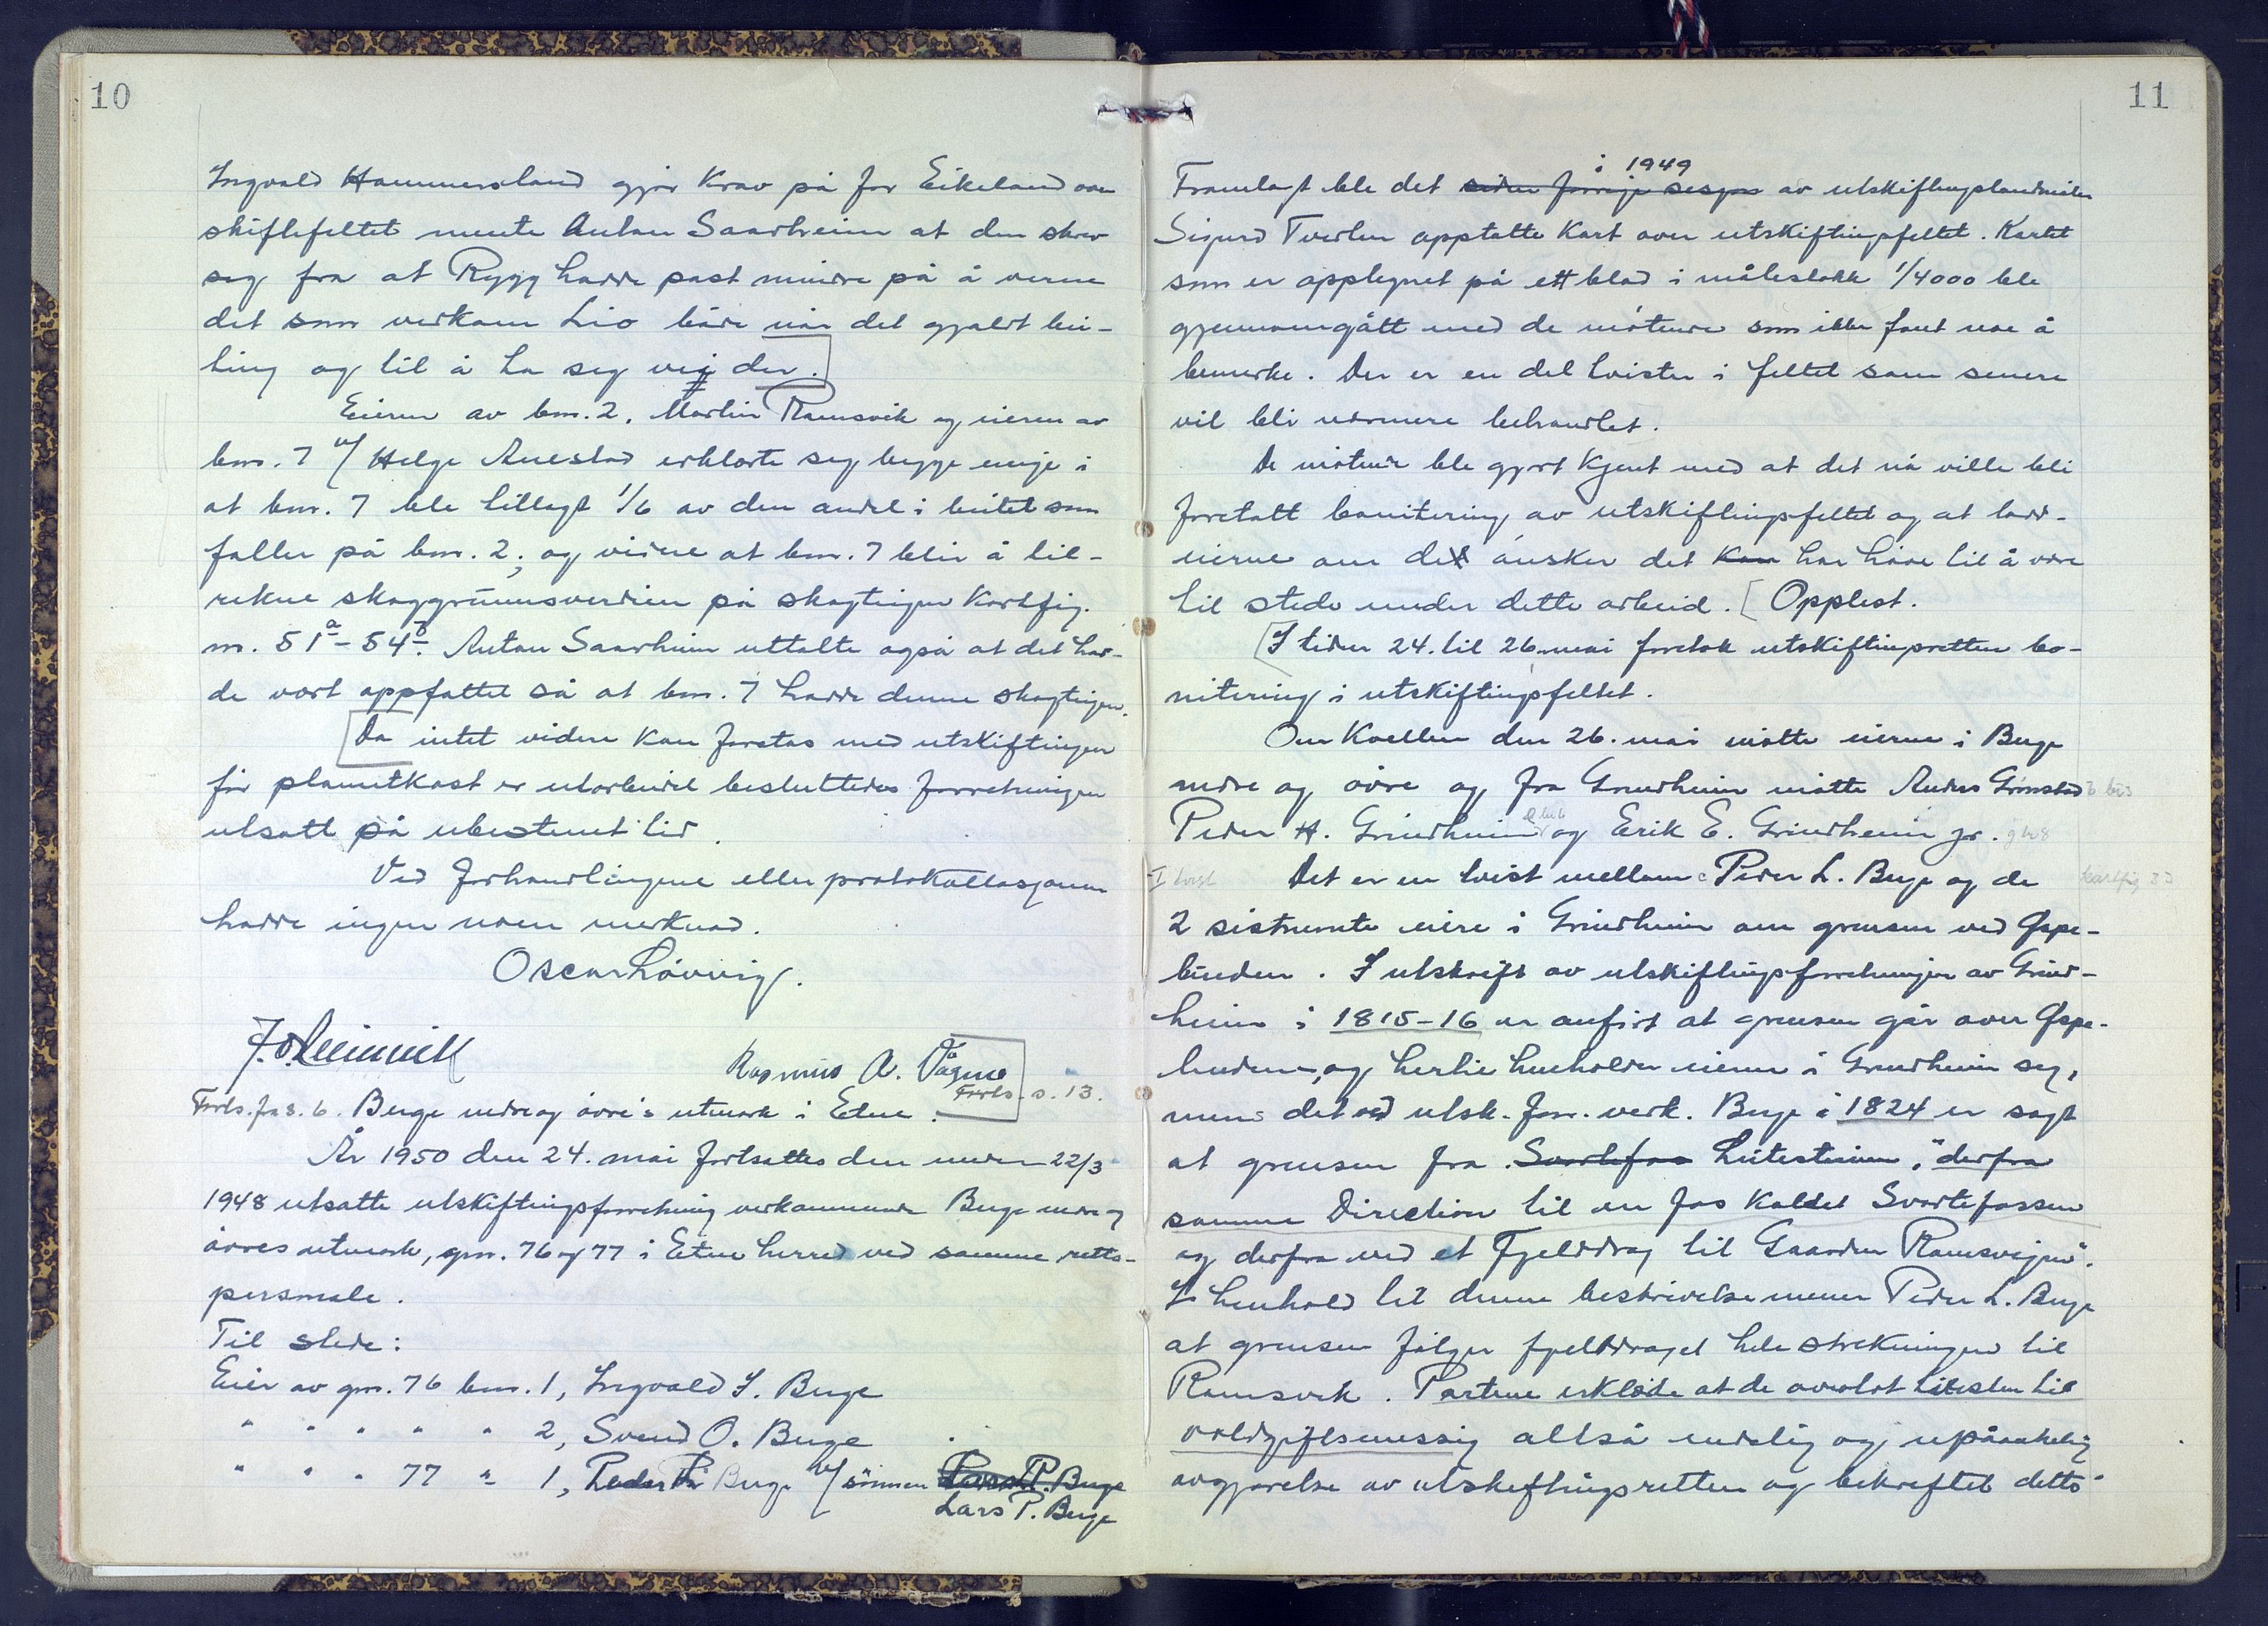 10
Ingvald Hammersland gjør krav på for Eikeland om
skiftefeltet mente Anton Saarheim at den skrev
seg fra at Rygg hadde past mindre på å verne
det som vedkom Lio både når det gjaldt bei-
ting og til å ta seg vei der.
Eieren av bnr. 2, Martin Ramsvik og eieren av
bnr. 7 v/ Helge Anestad erklærte seg begge enige i
at bnr. 7 ble tillagt 1/6 av den andel i beitet som
faller på bnr. 2, og videre at bnr. 7 blir å til-
rekne skoggrunnsverdien på skogteigen kartfig.
nr. 51a - 54b. Anton Saarheim uttalte også at det had-
de vært oppfattet så at bnr. 7 hadde denne skogteigen.
Da intet videre kan foretas med utskiftingen
før planutkast er utarbeidet besluttedes forretningen
utsatt på ubestemt tid.
Ved forhandlingene eller protokollasjonen
hadde ingen noen merknad.
Oscar Løvvig.
J. O. Leimvik
Rasmus A. Vågne
Forts. s. 13.
Forts. fra s. 6. Berge nedre og øvre's utmark i Etne.
År 1950 den 24. mai fortsattes den under 22/3
1948 utsatte utskiftingsforretning vedkommende Berge nedre og
øvres utmark, gnr. 76 og 77 i Etne herred ved samme retts-
personale.
Til stede:
Eier av gnr. 76 bnr. 1, Ingvald I. Berge
" " " " " 2, Svend O. Berge
" " " 77 " 1, Peder Berge v/ sønnen Lars P. Berge
Lars P. Berge
11
i 1949
Framlagt ble det siden forrige sesjon av utskiftingslandmåler
Sigurd Tverlin opptatte kart over utskiftingsfeltet. Kartet
som er opptegnet på ett blad i målestokk 1/4000 ble
gjennomgått med de møtende som ikke fant noe å
bemerke. Der er en del tvister i feltet som senere
vil bli nærmere behandlet.
De møtende ble gjort kjent med at det nå ville bli
foretatt bonitering av utskiftingsfeltet og at lodd-
eierne om det ønsker det kan har høve til å være
til stede under dette arbeid. [Opplest.
[I tiden 24. til 26. mai foretok utskiftingsretten bo-
nitering i utskiftingsfeltet.
Om kvelden den 26. mai møtte eierne i Berge
nedre og øvre og fra Grindheim møtte Anders Grønstad
Peder H. Grindheim og Erik E. Grindheim jr.
I tvist Det er en tvist mellom Peder L. Berge og de kartfig
2 sistnevnte eiere i Grindheim om grensen ved Gspe-
linden. I utskrift av utskiftingsforretningen av Grind-
heim i 1815-16 er anført at grensen går over Gspe-
linden, og hertil henholder eierne i Grindheim seg,
mens det ved utsk. forr. vedk. Berge i 1824 er sagt
at grensen fra Svartefos Leitesteinen, "derfra
samme Direction til en fos kaldet Svartefossen
og derfra ved et Fjelddrag til Gaarden Ramsvigen".
I henhold til denne beskrivelse mener Peder L. Berge
at grensen følger fjelddraget hele strekningen til
Ramsvik. Partene erklærte at de overlot tvisten til
voldgiftsmessig altså endelig og upåankelig
avgjørelse av utskiftingsretten og bekreftet dette